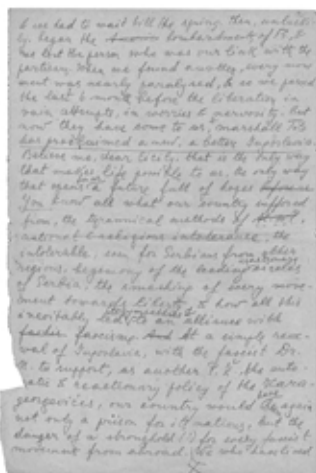 & we had to wait till the spring. Then, unluckily
began the bombardments of B., &
we lost the person who was our link with the
partisans. When we found another, every move
ment was nearly paralysed, & so we passed
the last 6 months before the liberation in
vain attempts, in worries & nervosity. But
now they have come to us, marshall Tito
has proclaimed a new, a better Yugoslavia.
Believe me, dear, that is the only way
that makes life possible to us, the only way
that opens us a future full of hopes
You know all what our country suffered
from, the tyrannical methods of
national & religious intolerance, the
intolerable, even for Serbians from other
regions, hegemony of the leading circles
of Serbia, the smashing of every move-
ment towards liberty, & how all this
inevitably led to an alliance with
fascism. At a simple rene-
wal of Yugoslavia, with the fascist Dr.
to support, as another the auto-
cratic & reactionary policy of the Kara-
georgevićes, our country would be again
not only a prison for its nations, but the
danger of a stronghold for every fascist
movement from abroad. We who